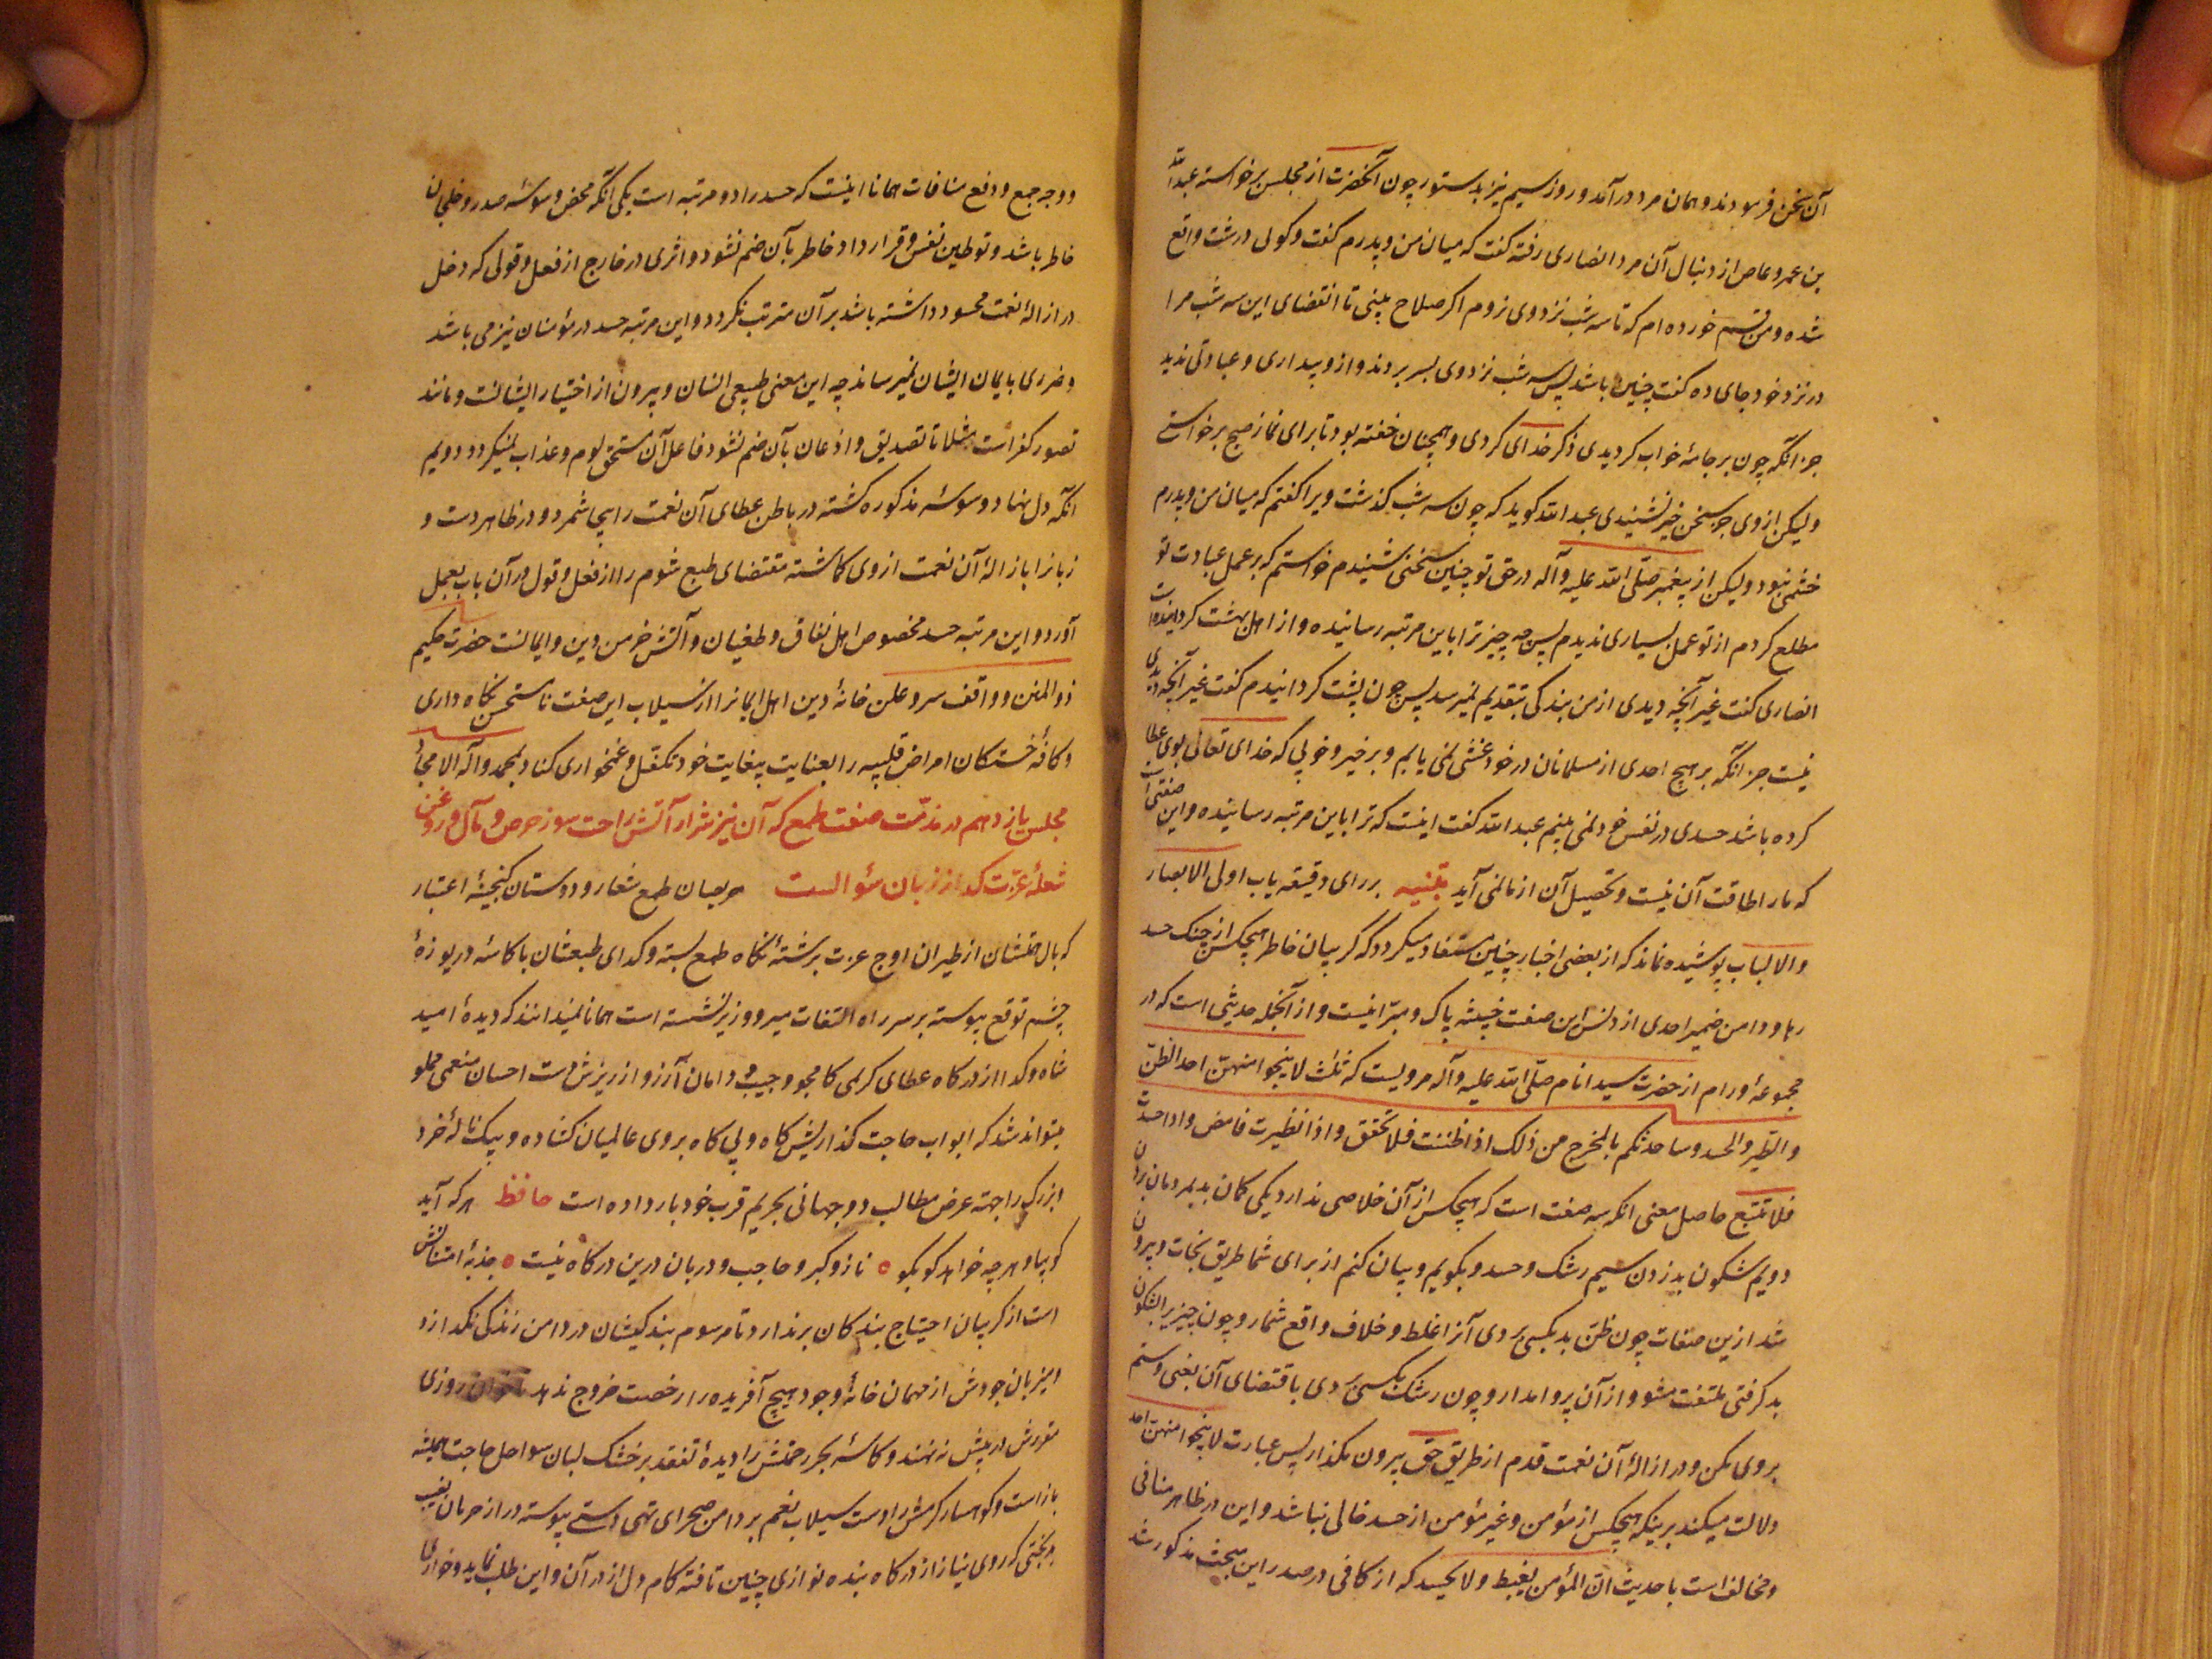 آن سخن فرمودند و همان مرد درآمد و روز سیم نیز بدستور چون آنحضرت از مجلس برخواسته عبدالله
بن عمرو عاص از دنبال آن مرد انصاری رفته گفت که میان من و پدرم گفت و گوئی درشت واقع
شده و من قسم خورده ام که تا سه شب نزد وی نروم اگر صلاح بینی تا انقضای این سه شب مرا
در نزد خود جای ده گفت چنین باشد پس سه شب نزد وی بسر بردند و ازو بیداری و عبادتی ندید
جز آنکه چون بر جامهٔ خواب گردیدی ذکر خدای کردی و همچنان خفته بود تا برای نماز صبح برخواستی
ولیکن از وی جز سخن خیر نشنیدی عبدالله گوید که چون سه شب گذشت ویرا گفتم که میان من و پدرم
خشمی نبود ولیکن از پیغمبر صلّی الله علیه وآله در حق تو چنین سخنی شنیدم خواستم که بر عمل عبادت تو
مطلع گردم از تو عمل بسیاری ندیدم پس چه چیز ترا باین مرتبه رسانیده و از اهل بهشت گردانیده است
انصاری گفت غیر آنچه دیدی از من بندگی بتقدیم نمیرسد پس چون پشت گردانیدم گفت غیر آنچه دیدی
نیست جز آنکه بر هیچ احدی از مسلمانان در خود غشی نمی یابم و بر خیر و خوبی که خدای تعالی بوی عطا
کرده باشد حسدی در نفس خود نمی بینم عبدالله گفت اینست که ترا باین مرتبه رسانیده و این صفتی است
که ما را طاقت آن نیست و تحصیل آن از ما نمی آید تنبیه بر رای دقیقه یاب اولی الابصار
والالباب پوشیده نماند که از بعضی اخبار چنین مستفاد میگردد که گریبان خاطر هیچکس از چنگ حسد
رها و دامن ضمیر احدی از دنس این صفت خبیثه پاک و مبرّا نیست و از آنجمله حدیثی است که در
مجموعهٔ ورام از حضرت سید انام صلّی الله علیه وآله مرویست که ثلث لا ینجوا منهنّ احد الظنّ
والطیر والحسد وساحدثکم بالمخرج من ذلک اذا ظننت فلا تحقق واذا تطیرت فامض واذا حسدت
فلا تبتغ حاصل معنی آنکه سه صفت است که هیچکس از آن خلاصی ندارد یکی گمان بد بمردمان بردن
دویم شگون بد زدن سیم رشک و حسد و بگویم و بیان کنم از برای شما طریق نجات و بیرون
شد ازین صفات چون ظنّ بد بکسی بردی آنرا غلط و خلاف واقع شمار و چون چیزیرا بشگون
بد گرفتی ملتفت مشو و از آن پروا مدار و چون رشک بکسی بردی باقتضای آن بغی و ستم
بر وی مکن و در ازالهٔ آن نعمت قدم از طریق حق بیرون مگذار پس عبارت لا ینجوا منهنّ احد
دلالت میکند برینکه هیچکس از مؤمن و غیر مؤمن از حسد خالی نباشد و این در ظاهر منافی
و مخالف است با حدیث انّ المؤمن یغبط ولا یحسد که از کافی در صدر این مبحث مذکور شد
و وجه جمع و دفع منافات همانا اینست که حسد را دو مرتبه است یکی آنکه محض وسوسهٔ صدر و خلجان
خاطر باشد و توطین نفس و قرارداد خاطر بآن ضم نشود و اثری در خارج از فعل و قولی که دخل
در ازالهٔ نعمت محسود داشته باشد بر آن مترتب نگردد و این مرتبه حسد در مؤمنان نیز می باشد
و ضرری بایمان ایشان نمیرساند چه این معنی طبیعی انسان و بیرون از اختیار ایشانست و مانند
تصور کفر است مثلا تا تصدیق و اذعان بآن ضم نشود فاعل آن مستحق لوم و عذاب نمیگردد دویم
آنکه دل نهاد وسوسهٔ مذکوره گشته در باطن عطای آن نعمت را بیجا شمرد و در ظاهر دست و
زبانرا بازالهٔ آن نعمت از وی گماشته مقتضای طبع شوم را از فعل و قول در آن باب بعمل
آورد و این مرتبه حسد مخصوص اهل نفاق و طغیان و آتش خرمن دین و ایمانست حضرت حکیم
ذوالمنن و واقف سر و علن خانهٔ دین اهل ایمانرا از سیلاب این صفت نامستحسن نگاه داری
و کافهٔ خستگان امراض قلبیه را بعنایت بیغایت خود تکفل و غمخواری کناد بمحمد وآله الامجاد
مجلس یازدهم در مذمّت صفت طمع که آن نیز شرار آتش راحت سوز حرص و مآل و روغن
شعلهٔ عزت گداز زبان سؤالست حریصان طمع شعار و دوستان گنجینهٔ اعتبار
که بال همتشان از طیران اوج عزت برشتهٔ نگاه طمع بسته و گدای طبعشان با کاسهٔ دریوزهٔ
چشم توقع پیوسته بر سر راه التفات میر و وزیر نشسته است همانا نمیدانند که دیدهٔ امید
شاه و گدا از درگاه عطای کریمی کامجو و جیب و دامان آرزو از ریزش دست احسان منعمی مملو
میتواند شد که ابواب حاجت گذاریش گاه و بی گاه بروی عالمیان گشاده و پیک نالهٔ خرد
و بزرگ را جهة عرض مطالب دو جهانی بحریم قرب خود بار داده است حافظ هر که آید
گو بیا و هر چه خواهد گو بگو ناز و کبر و حاجب و دربان درین درگاه نیست جذبهٔ امتنانش
دست از گریبان احتیاج بندگان برندارد تا مرسوم بندگیشان در دامن زندگی نگذارد
و میزبان جودش از مهمان خانهٔ وجود هیچ آفریده را رخصت خروج ندهد تا خوان روزی
مقررش در پیش ننهند و کاسهٔ بحر رحمتش را دیدهٔ تفقد بر خشک لبان سواحل حاجت همیشه
باز است و کوهسار کرمش را دست سیلاب نعم بر دامن صحرای تهی دستی پیوسته دراز حرمان نصیب
بدبختی که روی نیاز از درگاه بنده نوازی چنین تافته کام دل از در آن و این طلب نماید و خوار